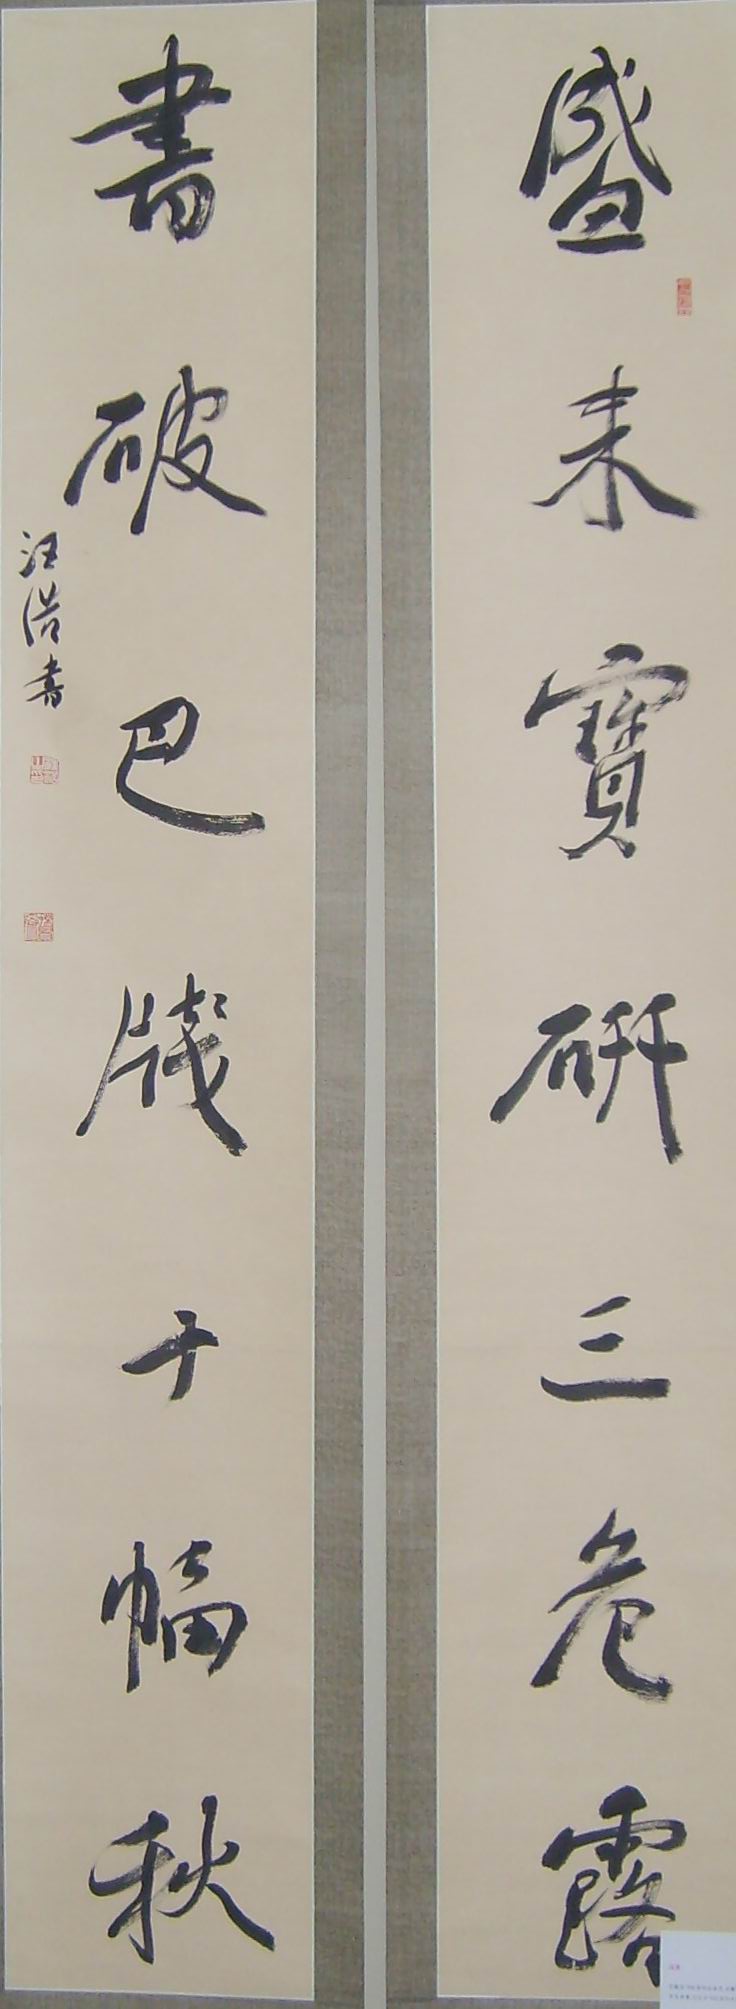 盛来寶研三危露
書破巴牋千幅秋
汪浩書